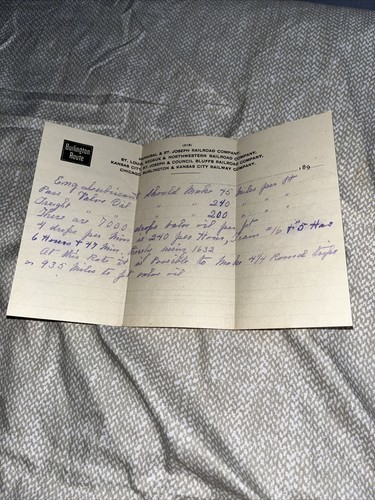 Burlington
Route
HANNIBAL & ST. JOSEPH RAILROAD COMPANY,
ST. LOUIS, KEOKUK & NORTHWESTERN RAILROAD COMPANY,
KANSAS CITY, ST. JOSEPH & COUNCIL BLUFFS RAILROAD COMPANY,
CHICAGO, BURLINGTON & KANSAS CITY RAILWAY COMPANY.
189
Eng Lubricant Should Make 75 Miles per Pt
Pass Valve Oil " " 240 " " "
Freight " " " " 200 " " "
There are 7000 drops valve oil per pt
4 drops per Min is 240 per Hour, Train #16 + 5 Have
6 Hours & 47 Min
At this Rate it is Possible to Make 4 1/4 Round Trips
or 935 Miles to pt valve oil